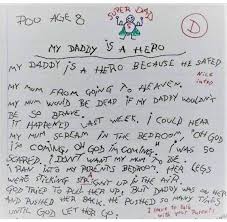 POU AGE 8
SUPER DAD
D
MY DADDY IS A HERO
MY DADDY IS A HERO BECAUSE HE SAVED
Nice intro
MY MUM FROM GOING TO HEAVEN.
MY MUM WOULD BE DEAD IF MY DADDY WOULDN'T
BE SO BRAVE.
IT HAPPENED LAST WEEK, I COULD HEAR
MY MUM SCREAM IN THE BEDROOM, "OH GOD
I'M COMING, OH GOD I'M COMING" I WAS SO
SCARED. I DIDN'T WANT MY MUM TO DIE.
I RAN INTO MY PARENTS BEDROOM, HER LEGS
WERE STICKING STRAIGHT UP IN THE AIR
GOD TRIED TO PULL HER UP BUT DADDY WAS ON HER
AND PUSHED HER BACK. HE PUSHED SO MANY TIMES
UNTIL GOD LET HER GO.
I have to talk
with your Parents